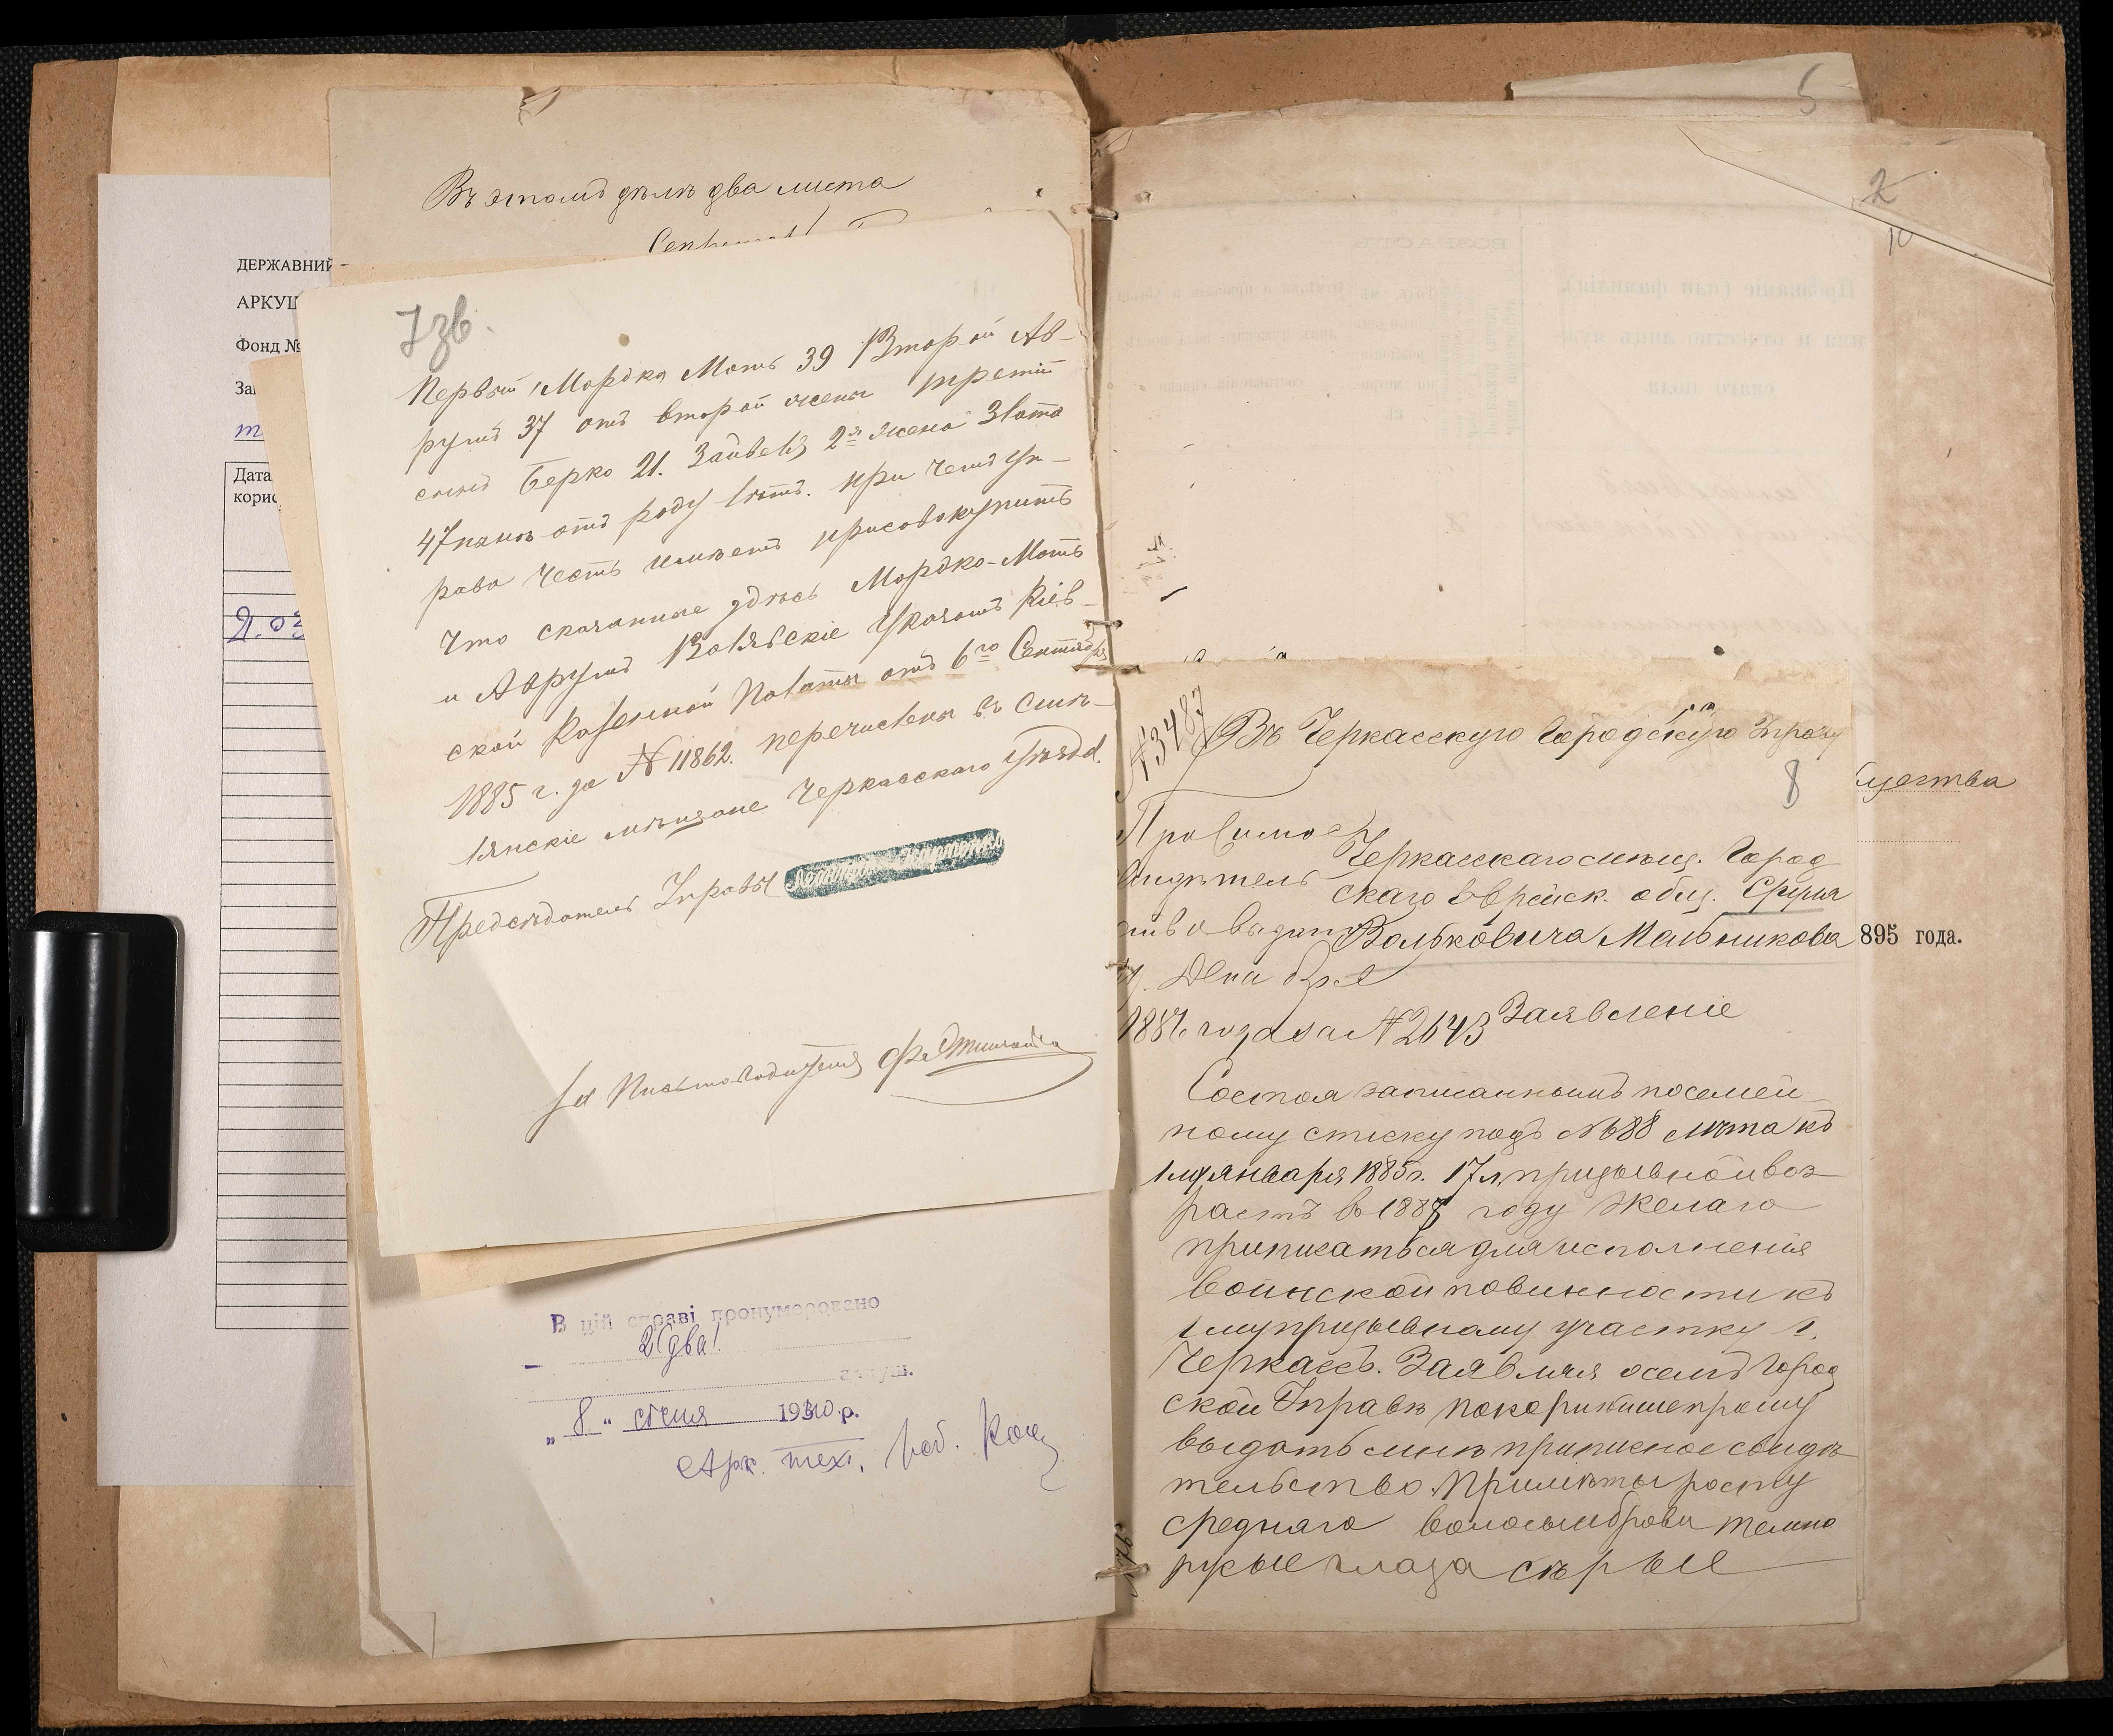 ДЕРЖАВНИЙ
АРКУШ
Фонд №
Дата
корис
Въ этомъ дѣлѣ два листа
7зв.
Первый Мордка Моть 39 Второй Ав-
румъ 37 отъ второй жены третій
сынъ Берко 21. Зайвеля 2я жена Злата
47 панъ отъ роду лѣтъ. при чемъ Уп-
рава честь имѣетъ присовокупить
что сказанные здѣсь Мордко-Моть
и Аврумъ Волявскіе Указомъ Кіев-
ской Казенной Палаты отъ 6го Сентября
1885 г. за № 11862. перечислены въ
мѣщане Черкасскаго Уѣзда.
Предсѣдатель Управы
за Письмоводителя
В цій справі пронумеровано
2 (два)
аркуш.
„ 8 " січня 1940 р.
Арх. тех. роб.
5
2
№3487
Въ Черкасскую Городскую Управу
8
щества
Черкасскаго мѣщ. Город
скаго Еврейск. общ. Сруля
Вольковича Мельникова
895 года.
1886 года за №2643
Заявленіе
Состоя записаннымъ по семей-
ному списку подъ №688 лѣта къ
1му января 1885 г. 17 л. призывной воз-
растъ въ 1888 году Желаю
приписаться для исполненія
воинской повинности къ
1му призывному участку г.
Черкассъ. Заявляя о семъ Город
ской Управѣ покорнѣйше прошу
выдать мнѣ приписное свидѣ-
тельство. Примѣты росту
средняго волосы и брови темно
русые глаза сѣрые